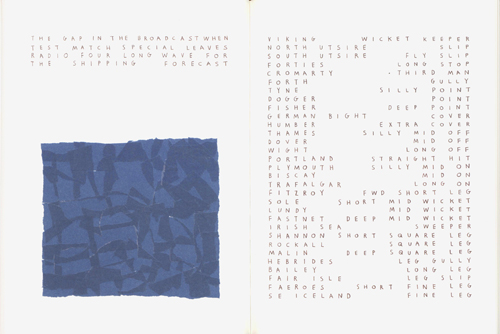 THE GAP IN THE BROADCAST WHEN
TEST MATCH SPECIAL LEAVES
RADIO FOUR LONG WAVE FOR
THE SHIPPING FORECAST
VIKING WICKET KEEPER
NORTH UTSIRE SLIP
SOUTH UTSIRE FLY SLIP
FORTIES LONG STOP
CROMARTY THIRD MAN
FORTH GULLY
TYNE SILLY POINT
DOGGER POINT
FISHER DEEP POINT
GERMAN BIGHT COVER
HUMBER EXTRA COVER
THAMES SILLY MID OFF
DOVER MID OFF
WIGHT LONG OFF
PORTLAND STRAIGHT HIT
PLYMOUTH SILLY MID ON
BISCAY MID ON
TRAFALGAR LONG ON
FITZROY FWD SHORT LEG
SOLE SHORT MID WICKET
LUNDY MID WICKET
FASTNET DEEP MID WICKET
IRISH SEA SWEEPER
SHANNON SHORT SQUARE LEG
ROCKALL SQUARE LEG
MALIN DEEP SQUARE LEG
HEBRIDES LEG GULLY
BAILEY LONG LEG
FAIR ISLE LEG SLIP
FAEROES SHORT FINE LEG
SE ICELAND FINE LEG